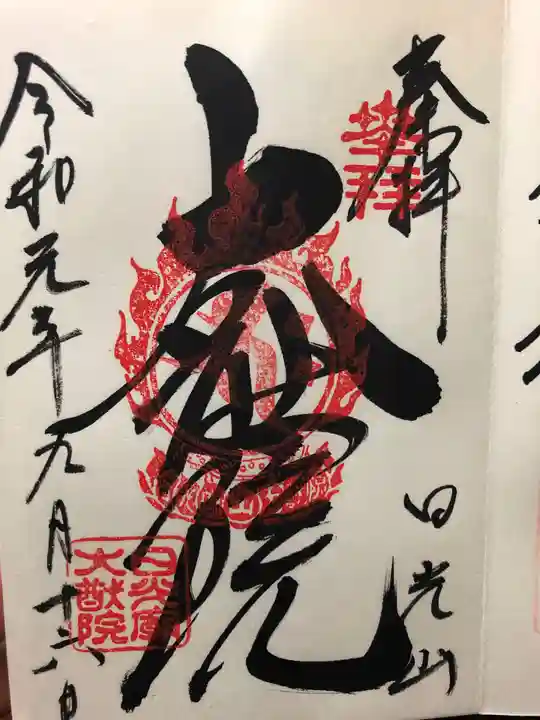 奉拝
登拝
日光山
大猷院
令和元年九月十六日
日光廟
大猷院